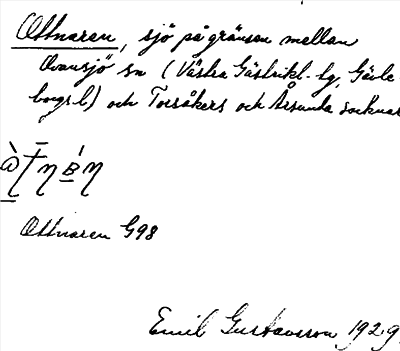 Ottnaren, sjö på gränsen mellan
Ovansjö sn (Västra Gästrikl. hg, Gävle-
borgs l) och Torsåkers och Årsunda socknar
Ottnaren G98
Emil Gustavsson 1929